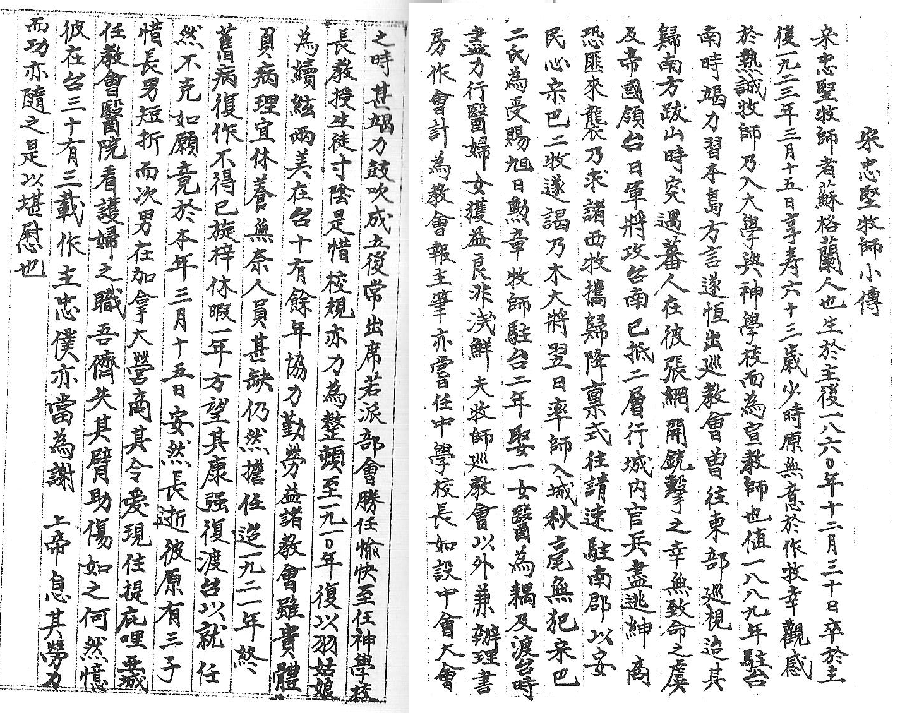 宋忠堅牧師小傳
宋忠堅牧師者蘇格蘭人也生於主後一八六〇年十二月三十日卒於主
後一九二三年三月十五日享寿六十三歲少時原無意於作牧幸觀感
於熱誠牧師乃入大學與神學校而為宣教師也值一八八九年駐台
南時竭力習本島方言遂恒出巡教會曾往東部巡視迨其
歸南方跋山時突遇蕃人在彼張網開銃擊之幸無致命之虞
及帝國領台日軍將攻台南已抵二層行城內官兵盡逃紳商
恐匪來襲乃求諸西牧攜歸降稟式往請速駐南郡以安
民心宋巴二牧遂謁乃木大將翌日率師入城秋毫無犯宋巴
二氏為受賜旭日勲章牧師駐台二年娶一女醫為耦及渡台時
盡力行醫婦女獲益良非淺鮮夫牧師巡教會以外兼辦理書
房作會計為教會報主筆亦嘗任中學校長如設中會大會
之時甚竭力鼓吹成立後常出席若派部會勝任愉快至任神學校
長教授生徒寸陰是惜校規亦力為整頓至一九一〇年復以羽姑娘
為續絃兩美在台十有餘年協力勤勞益諸教會雖貴體
負病理宜休養無奈人員甚缺仍然擔任迨一九二一年終
舊病復作不得已旋梓休暇一年方望其康强復渡台以就任
然不克如願竟於本年三月十五日安然長逝彼原有三子
惜長男短折而次男在加拿大營商其令愛現住提庇哩兼
任教會醫院看護婦之職吾儕失其臂助傷如之何然憶
彼在台三十有三載作主忠僕亦當為謝 上帝息其勞力
而功亦隨之是以堪慰也